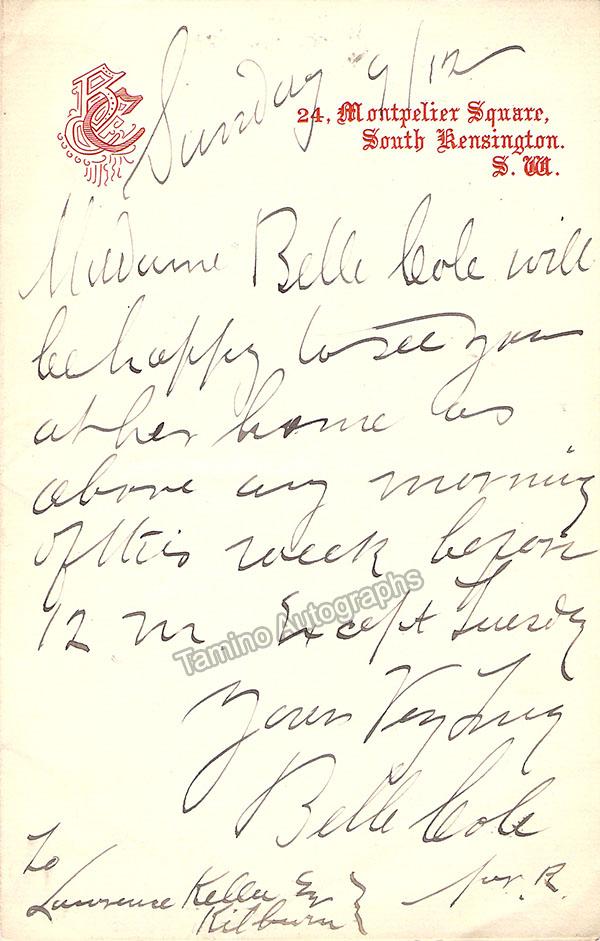 BC
Sunday 9/12
24, Montpelier Square,
South Kensington.
S. W.
Madame Belle Cole will
be happy to see you
at her home as
above any morning
of this week before
12 m. Except Tuesday
Tamino Autographs
Yours Very Truly
Belle Cole
per. R.
To
Lawrence Kellie Esq
Kilburn